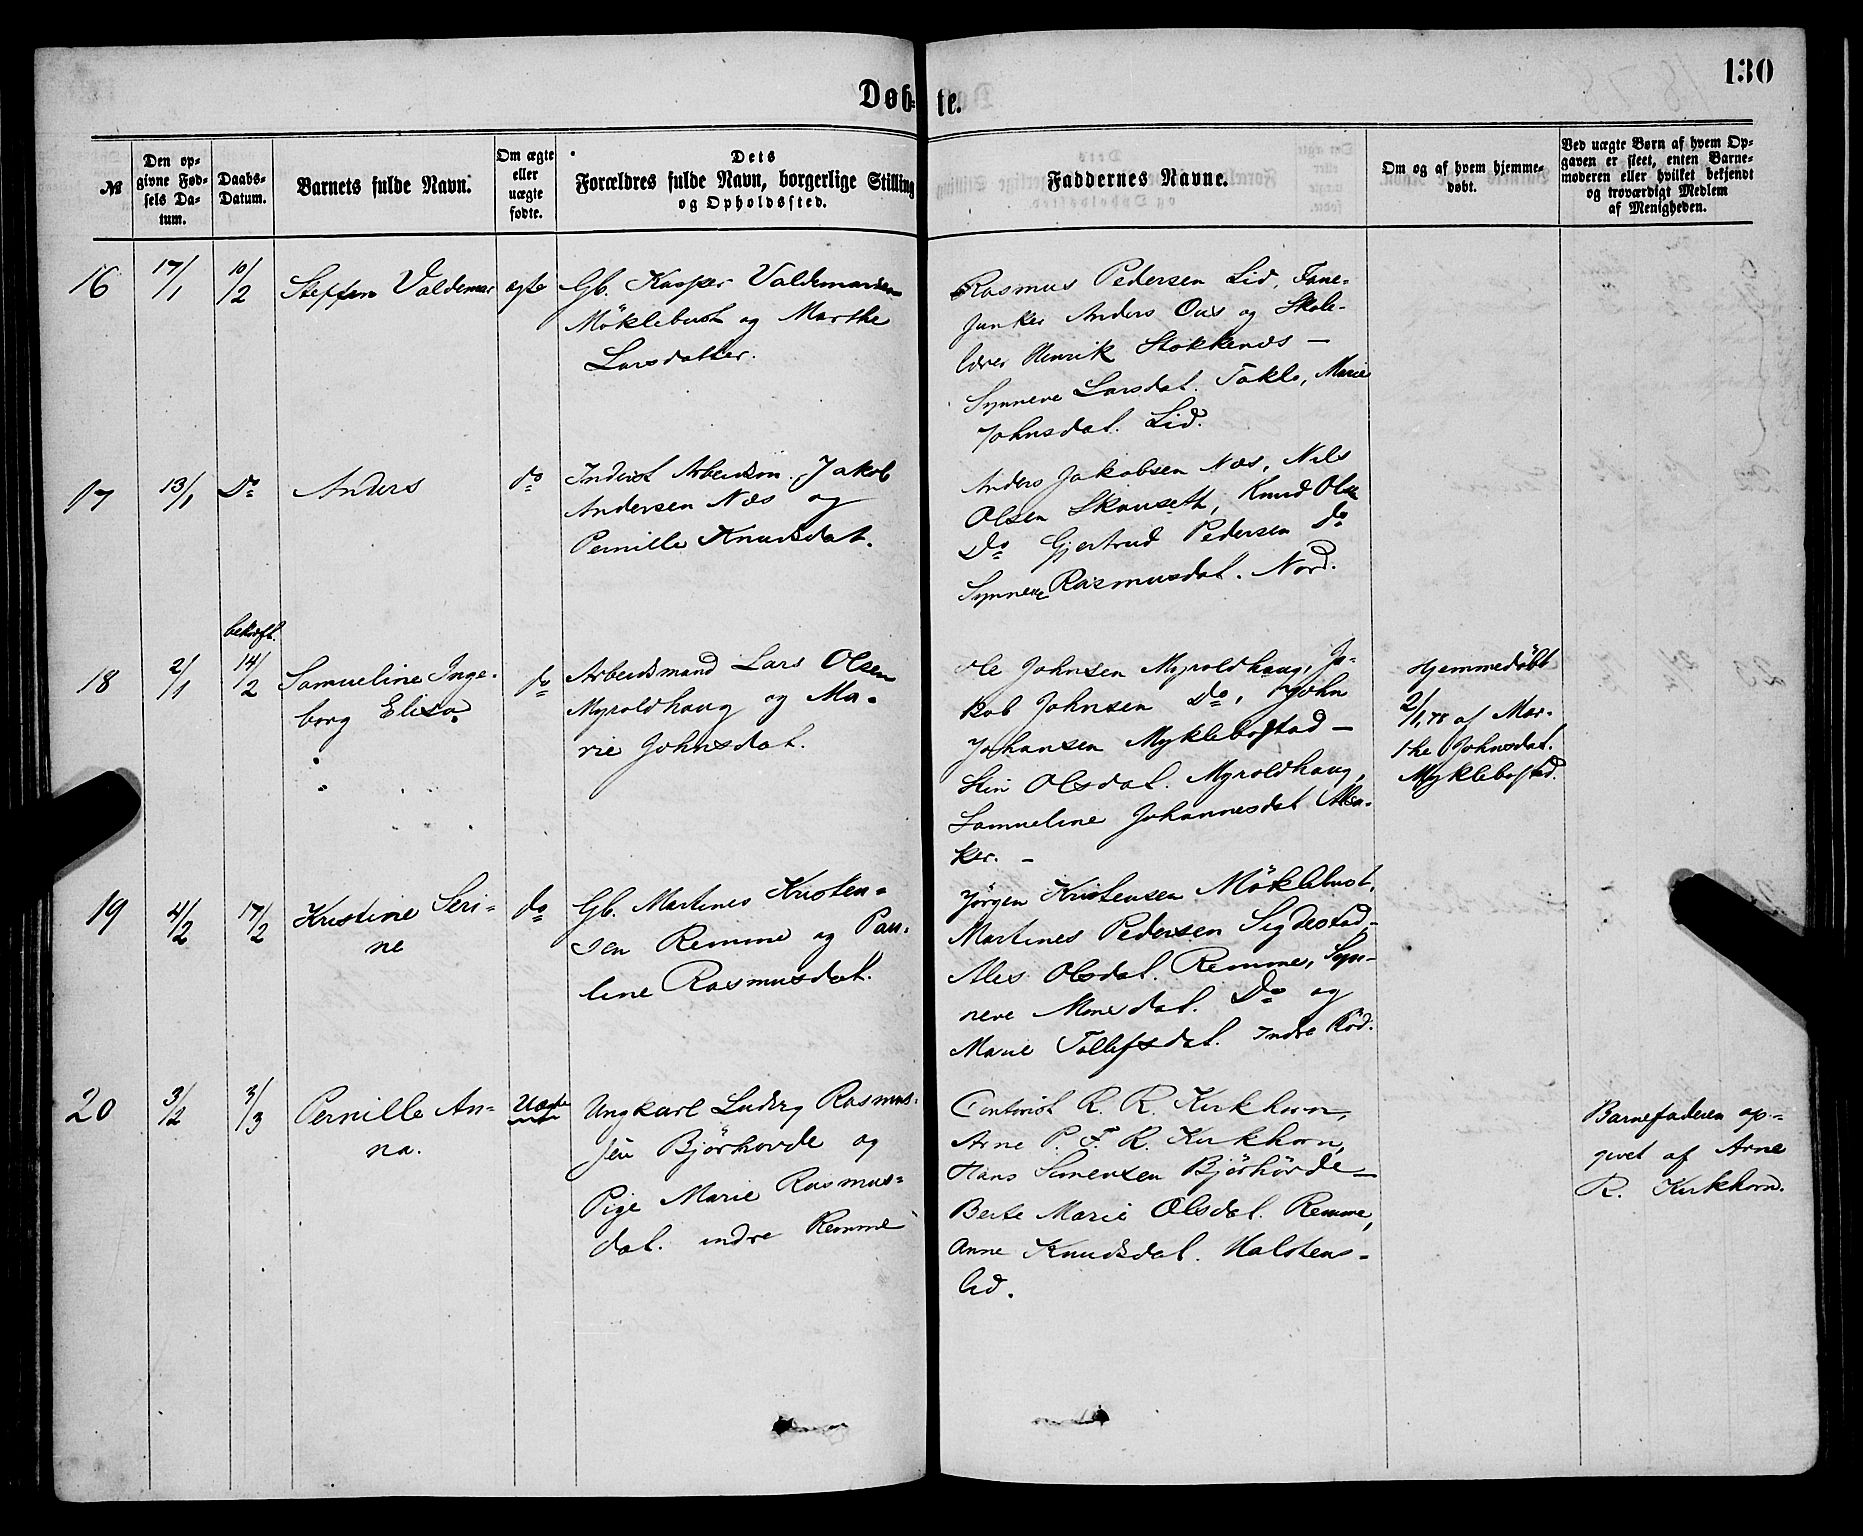 130
Døb-te.
№
Den op-
givne Fød-
sels Da-
tum.
Daabs-
Datum.
Barnets fulde Navn.
Om ægte
eller
uægte
fødte.
Dets
Forældres fulde Navn, borgerlige Stilling
og Opholdssted.
Faddernes Navne.
Om og af hvem hjemme-
døbt.
Ved uægte Børn af hvem Op-
gaven er skeet, enten Barne-
moderen eller hvilket bekjendt
og troværdigt Medlem
af Menigheden.
16
17/1
10/2
Steffen Valdemar
ægte
Gb. Kasper Valdemarsen
Möklebust og Marthe
Larsdatter.
Rasmus Pedersen Lid, Fane-
junker Anders Ous og Skole-
lærer Henrik Stokkenes —
Synneve Larsdat. Takle, Marie
Johnsdat. Lid.
17
13/1
Do
Anders
do
Inderst Arbeidsm. Jakob
Andersen Næs og
Pernille Knudsdat.
Anders Jakobsen Næs, Nils
Olsen Skauseth, Knud Olsen
Do Gjertrud Pedersen Do
Synneve Rasmusdat. Nord.
18
2/1
bekræft.
14/2
Samueline Inge-
borg Elisa
do
Arbeidsmand Lars Olsen
Myroldhaug og Ma-
rie Johnsdat.
Ole Johnsen Myroldhaug, Ja-
kob Johnsen Do, John
Johansen Myklebostad —
Stin Olsdat. Myroldhaug,
Samueline Johannesdat Aka-
ker. —
Hjemmedöbt
2/1,78 af Mar-
the Johnsdat.
Myklebostad.
19
4/2
17/2
Kristine Seri-
ne
do
Gb. Martines Kristen-
sen Remme og Pau-
line Rasmusdat.
Jørgen Kristensen Möklebust,
Martines Pedersen Sigdestad —
Alex Olsdat. Remme, Syn-
neve Monsdat. Do og
Marie Tollefsdat. Indre Röd.
20
3/2
3/3
Pernille An-
na.
Uægte
Ungkarl Ludvig Rasmus-
sen Björhovde og
Pige Marie Rasmus-
dat. indre Remme
R. R. Kirkhorn,
Arne P. F. R. Kirkhorn,
Hans Simensen Björhövde —
Berte Marie Olsdat. Remme,
Anne Knudsdat. Halstens-
lid.
Barnefaderen op-
givet af Arne
R. Kirkhorn.